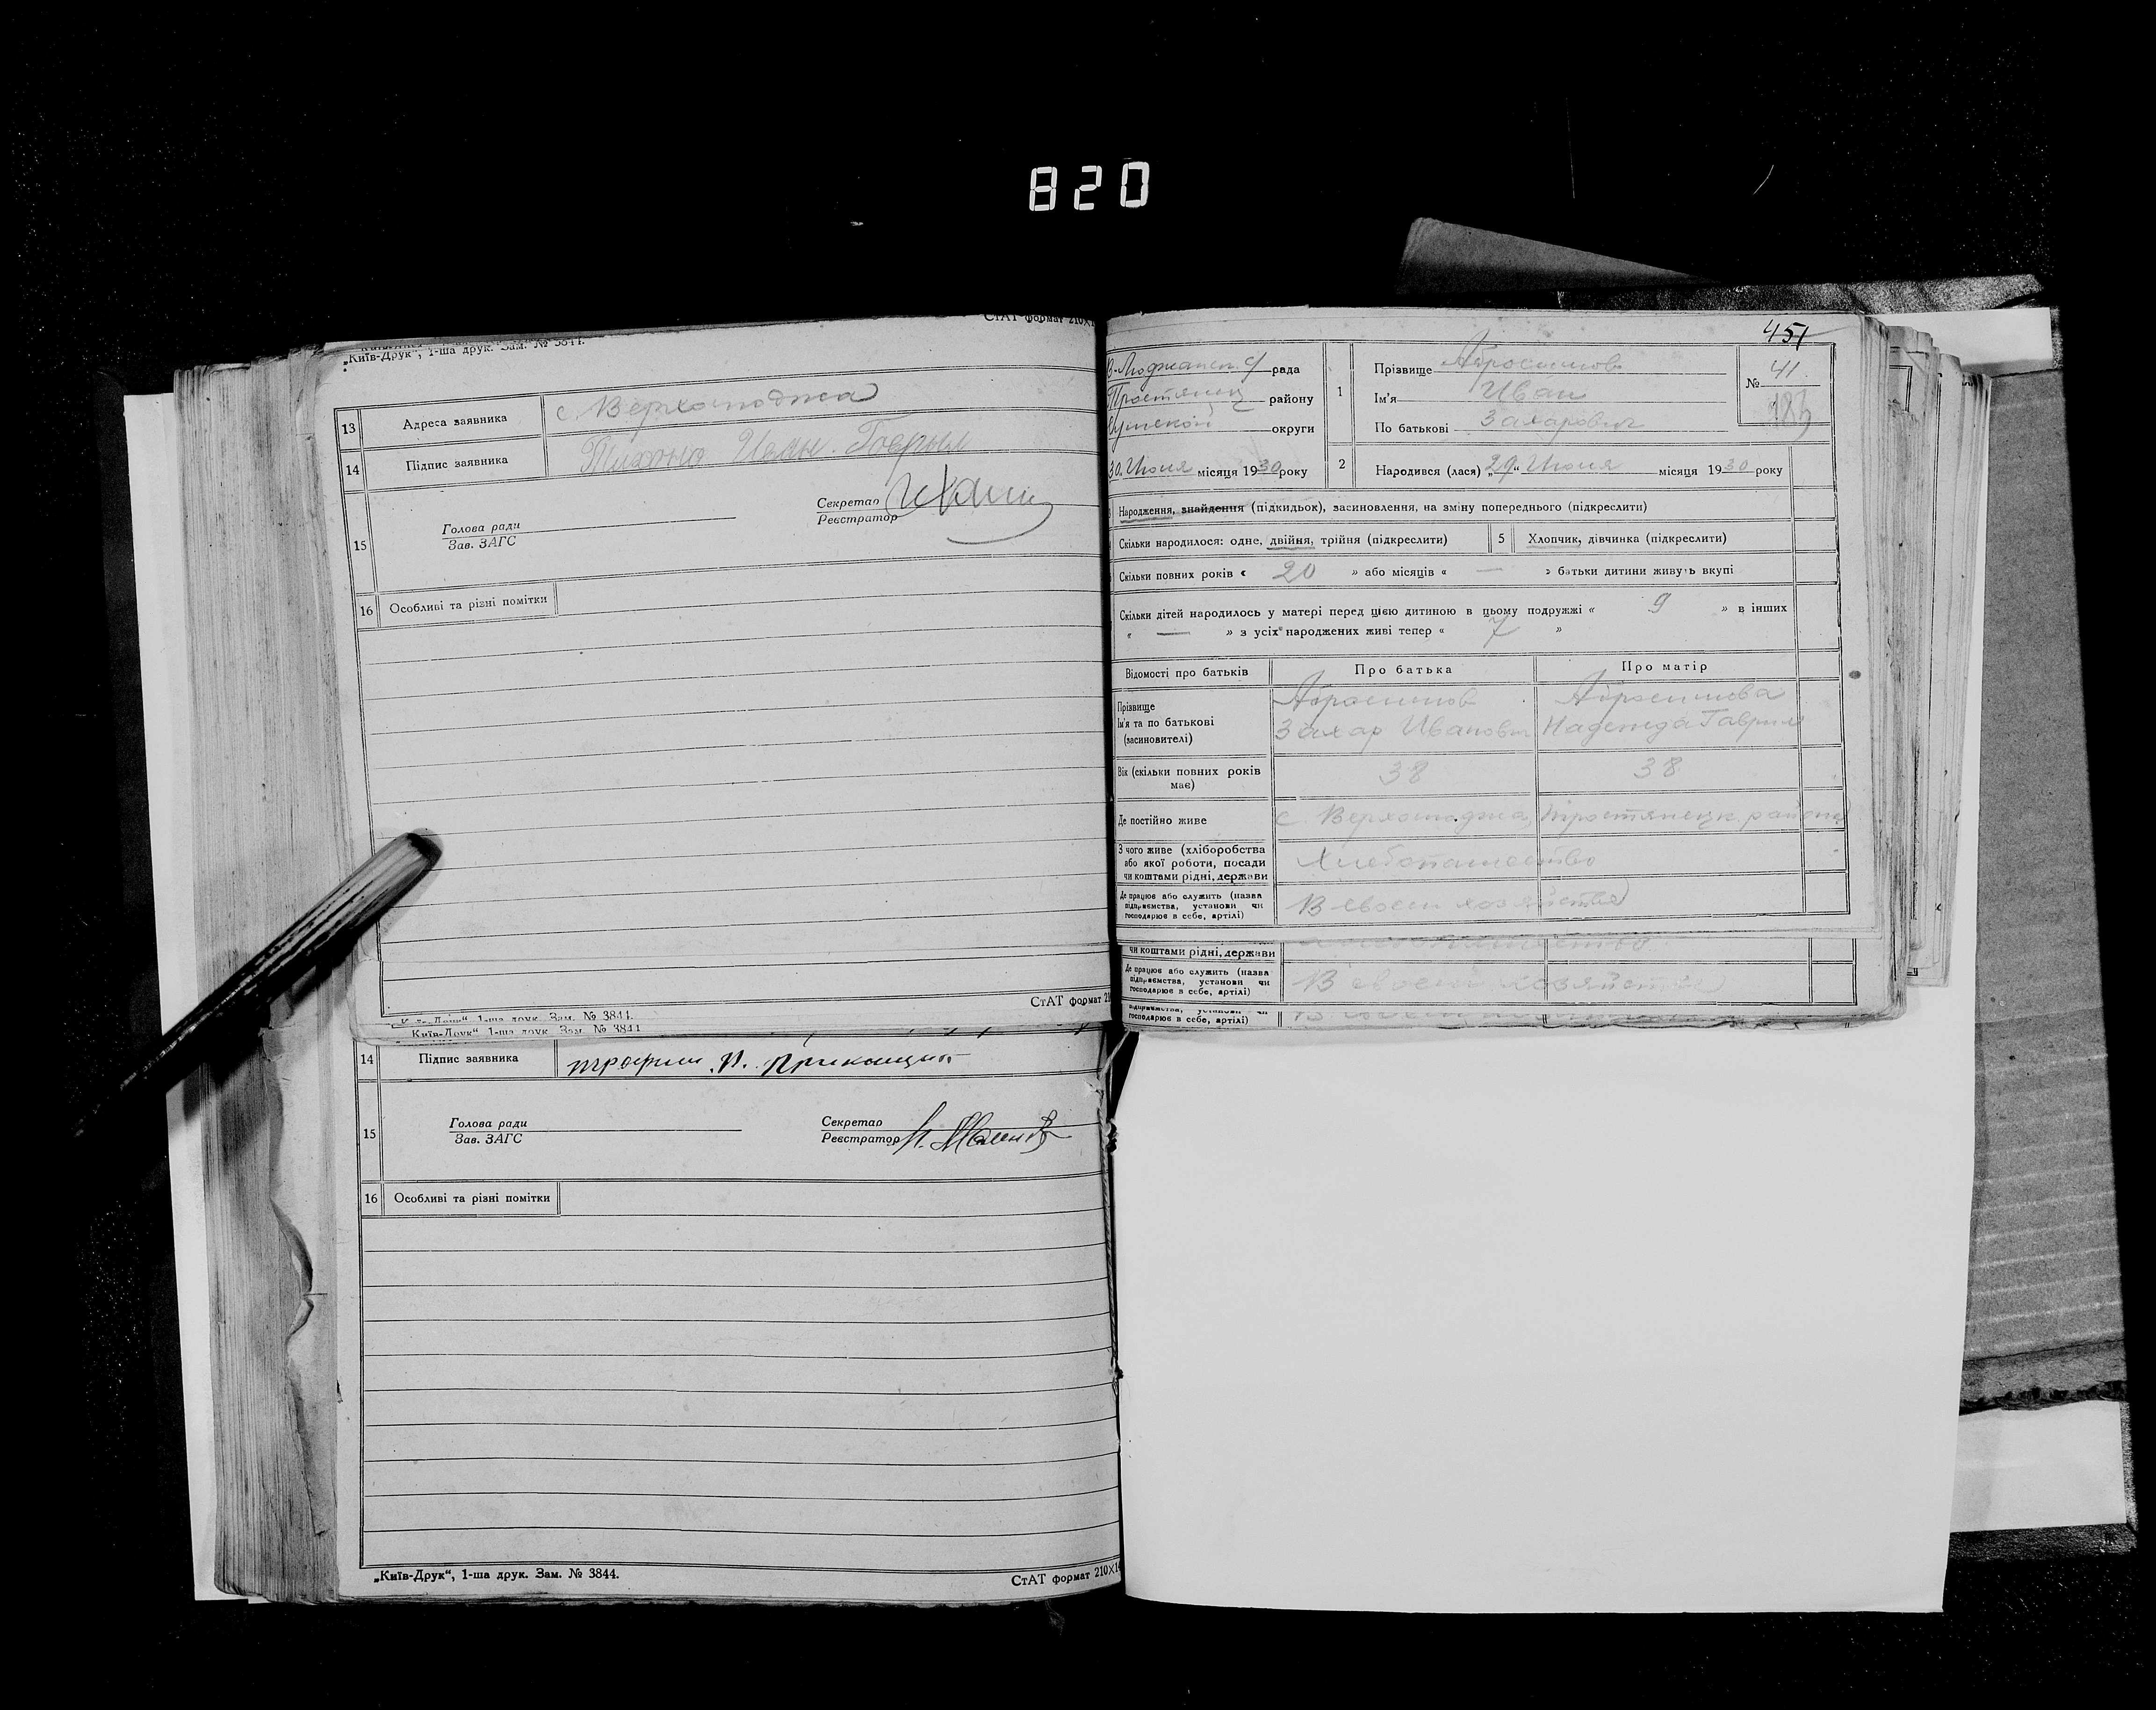 820
СтАТ формат 210Х1
„Київ-Друк“, 1-ша друк. Зам. № 3844.
13 Адреса заявника с. Верхолюджа
14 Підпис заявника
15 Голова ради
Зав. ЗАГС
Секретар
Реєстратор
16 Особливі та різні помітки
СтАТ формат 21
„Київ-Друк“, 1-ша друк. Зам. № 3844.
Київ-Друк“, 1-ша друк. Зам. № 3844
14 Підпис заявника трофим П.
15 Голова ради
Зав. ЗАГС
Секретар
Реєстратор
16 Особливі та різні помітки
„Київ-Друк“, 1-ша друк. Зам. № 3844.
СтАТ формат 210Х14
451
рада
району
округи
30. Июня місяця 1930 року
1 Прізвище
Ім'я Иван
По батькові Захарович
№ 41.
183
2 Народився (лася) „29“ Июня місяця 1930 року
Народження, знайдення (підкидьок), засиновлення, на зміну попереднього (підкреслити)
Скільки народилося: одне, двійня, трійня (підкреслити)
5 Хлопчик, дівчинка (підкреслити)
Скільки повних років « 20 » або місяців « — » батьки дитини живуть вкупі
Скільки дітей народилось у матері перед цією дитиною в цьому подружжі « 9 » в інших
« — » з усіх народжених живі тепер « 7 »
Відомості про батьків Про батька Про матір
Прізвище
Ім'я та по батькові Захар Иванович Надежда Гаврил
(засиновителі)
Вік (скільки повних років 38 38
має)
Де постійно живе с. Верхолюджа, Тростянецк. района
З чого живе (хліборобства
або якої роботи, посади Хлебопашество
чи коштами рідні, держави
Де працює або служить (назва
підприємства, установи чи В своем хозяйстве
господарює в себе, артілі)
чи коштами рідні, держави
Де працює або служить (назва
підприємства, установи чи В своем хозяйстве
господарює в себе, артілі)
підприємства, установи чи
господарює в себе, артілі)